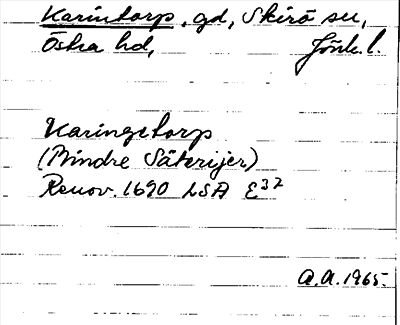 Karintorp, gd, Skirö sn,
Östra hd, Jönk. l.
Karingetorp
(Mindre Säterijer)
Renov. 1690 LSA E³²
A.A. 1965.